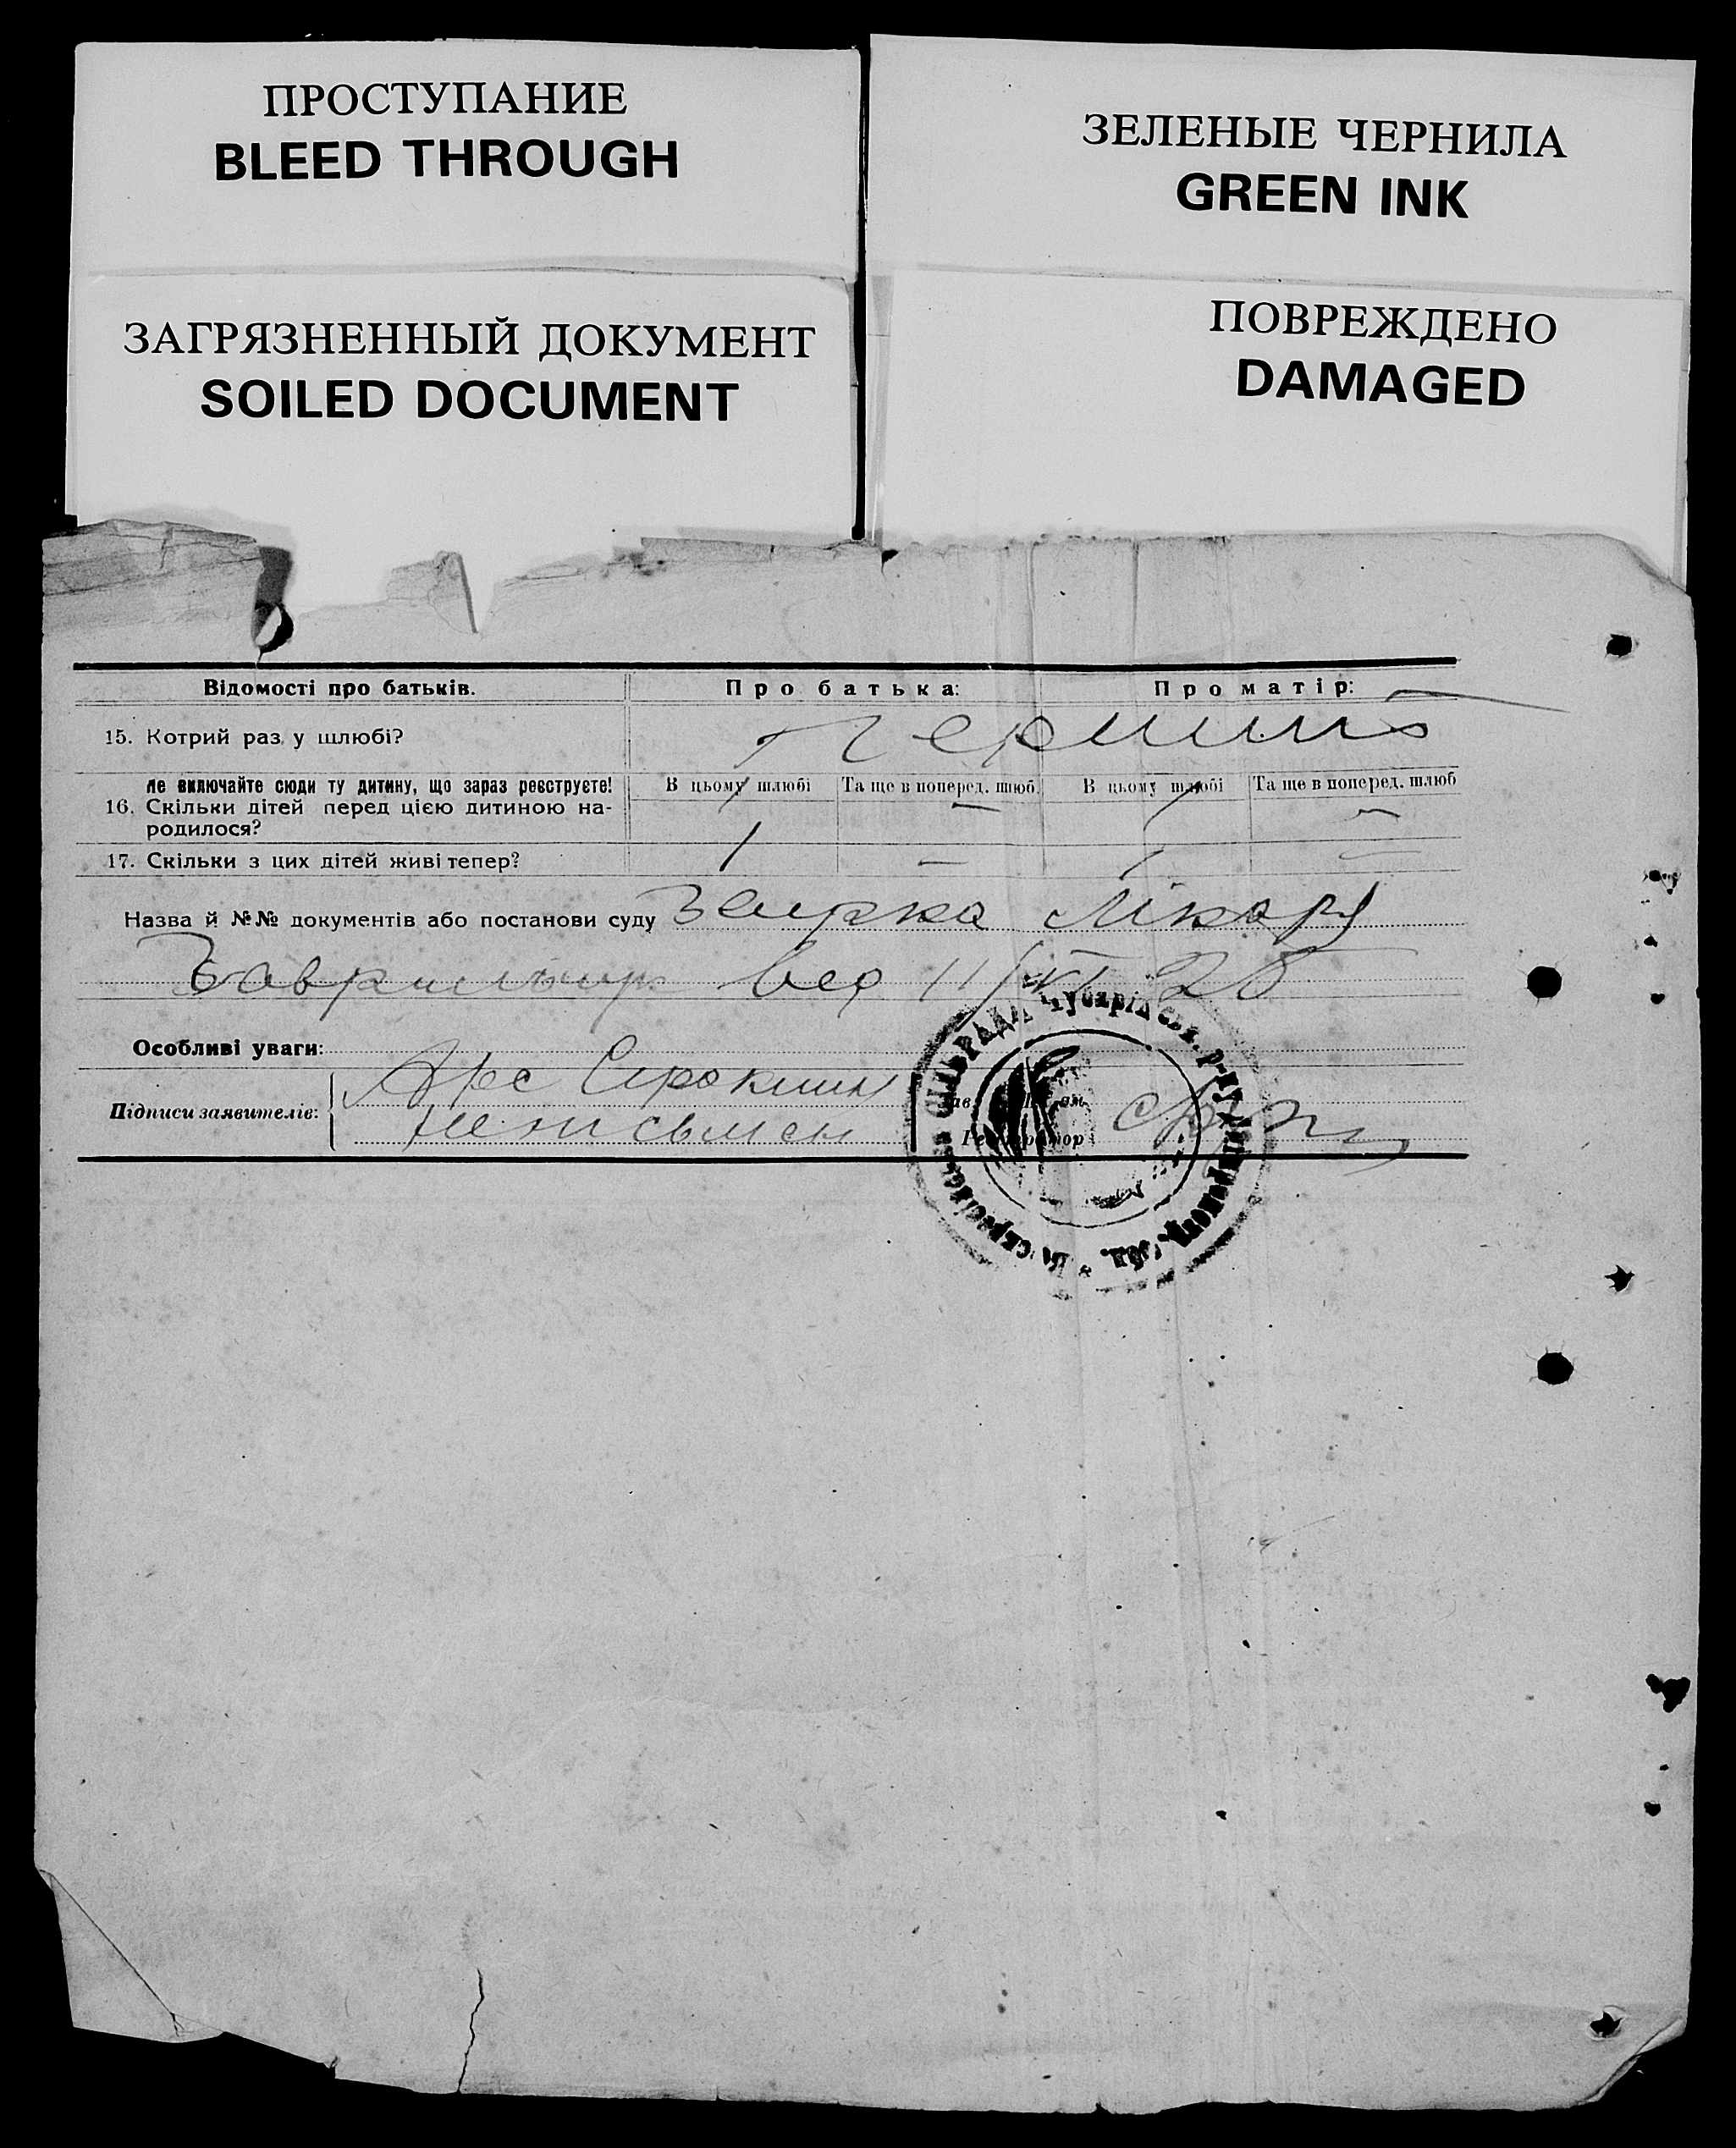 ПРОСТУПАНИЕ
BLEED THROUGH
ЗЕЛЕНЫЕ ЧЕРНИЛА
GREEN INK
ЗАГРЯЗНЕННЫЙ ДОКУМЕНТ
SOILED DOCUMENT
ПОВРЕЖДЕНО
DAMAGED
Відомості про батьків. Про батька: Про матір:
15. Котрий раз у шлюбі?
Не включайте сюди ту дитину, що зараз реєструєте! В цьому шлюбі Та ще в поперед. шлюб. В цьому шлюбі Та ще в поперед. шлюб
16. Скільки дітей перед цією дитиною на-
родилося? 1 — 1 —
17. Скільки з цих дітей живі тепер? 1 — 1 —
Назва й №№ документів або постанови суду Лікаря
11/XI
Особливі уваги:
Підписи заявителів:
Реєстратор